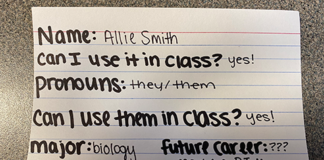 Name: Allie Smith
can I use it in class? yes!
pronouns: they/them
can I use them in class? yes!
major: biology future career: ???